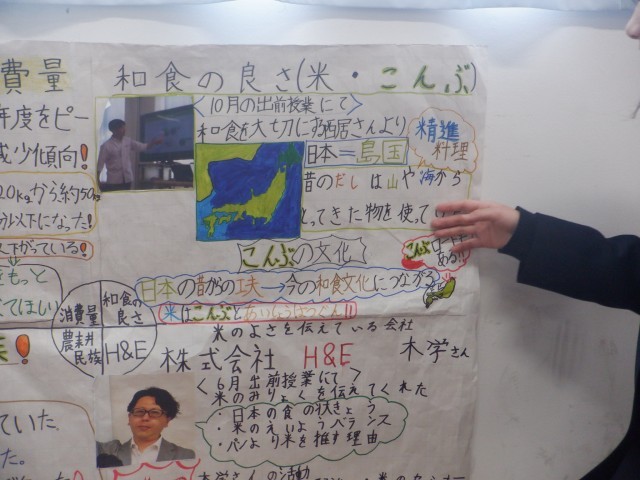 費量
年度をピー
減少傾向!
20kgから約50
分以下になった!
下がっている!
をもっと
てほしい
和食の良さ(米・こんぶ)
<10月の出前授業にて>
和食を大切にする西居さんより
日本=島国
精進
料理
昔のだしは山や海から
とってきた物を使って
こんぶの文化
こんぶロード
ある!!
日本の昔からの工夫→今の和食文化につながる
米はこんぶとあいしょうばつぐん!!
消費量
和食の
良さ
農耕
民族
H&E
米のよさを伝えている会社
株式会社 H&E 木学さん
<6月出前授業にて>
米のみりょくを伝えてくれた
・日本の食の状きょう
・米のえいようバランス
・パンより米を推す理由
ていた。
た。
木学さんの活動